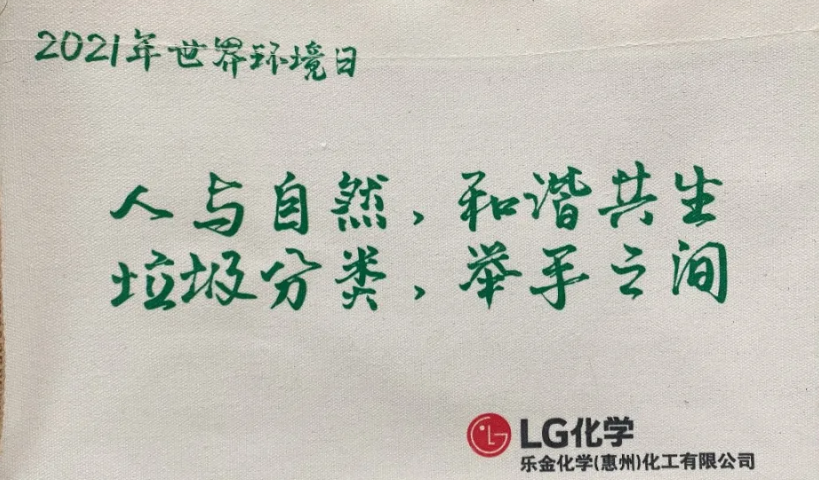 2021年世界环境日
人与自然，和谐共生
垃圾分类，举手之间
LG化学
乐金化学(惠州)化工有限公司